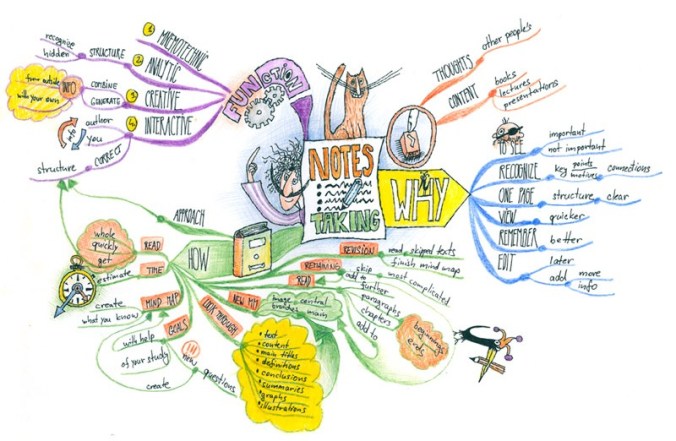 NOTES
TAKING
FUNCTION
1 MNEMOTECHNIC
2 ANALYTIC
STRUCTURE
recognize
hidden
3 CREATIVE
COMBINE
GENERATE
INFO
from outside
with your own
4 INTERACTIVE
author
you
info
CORRECT
structure
THOUGHTS
other people's
CONTENT
books
lectures
presentations
WHY
TO SEE
important
not important
RECOGNIZE
key points
motives
connections
ONE PAGE
structure
clear
VIEW
quicker
REMEMBER
better
EDIT
later
add
more
info
HOW
APPROACH
READ
whole
quickly
get
TIME
estimate
MIND MAP
create
what you know
GOALS
with help
of your study
create
new
questions
LOOK THROUGH
• text
• content
• main titles
• definitions
• conclusions
• summaries
• graphs
• illustrations
NEW MM
image
central
branches
main
READ
further
paragraphs
chapters
add to
beginnings
ends
REMAINING
skip
most complicated
REVISION
read
skipped texts
finish mind maps